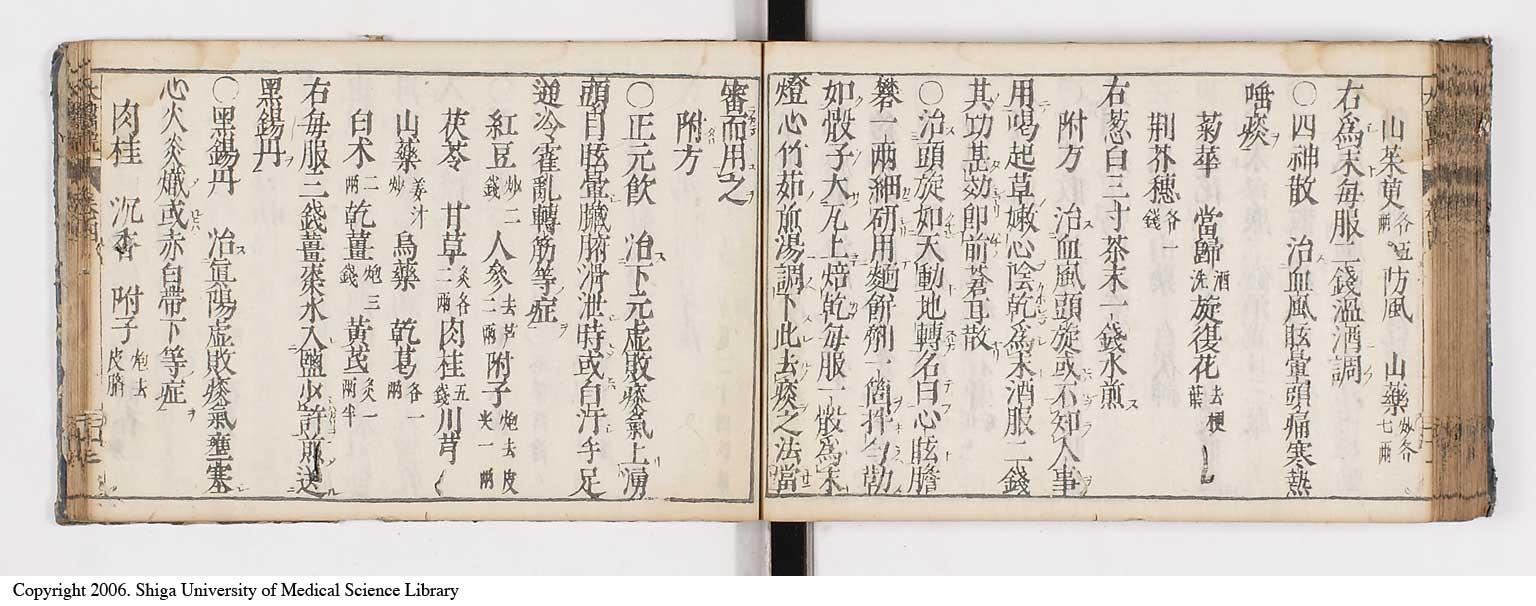 山茱萸各五兩防風 山藥炒各七兩
右爲末毎服二錢溫酒調
○四神散 治血風眩暈頭痛寒熱
唾痰
菊華 當歸酒洗旋復花去梗葉
荆芥穗各一錢
右葱白三寸茶末一錢水煎
附方 治血風頭旋或不知人事
用喝起草嫩心陰乾爲末酒服二錢
其功甚効即前蒼耳散
○治頭旋如天動地轉名曰心眩膽
礬一兩細研用麵餅劑一箇拌勻勒
如骰子大瓦上焙乾毎服一骰爲末
燈心竹茹煎湯調下此去痰之法當
審而用之
附方
○正元飲 治下元虛敗痰氣上湧
頭目眩暈臟腑滑泄時或自汗手足
逆冷霍亂轉筋等症
紅豆炒二錢 人參去芦二兩附子炮去皮夾一兩
茯苓 甘草炙各二兩肉桂五錢川芎
山藥姜汁炒 烏藥 乾葛各一兩
白朮二兩乾薑炮三錢 黃芪炙一兩半
右毎服三錢薑棗水入鹽少許煎送
黑錫丹
○黑錫丹 治眞陽虛敗痰氣壅塞
心火炎熾或赤白帶下等症
肉桂 沉香 附子炮去皮臍
Copyright 2006. Shiga University of Medical Science Library